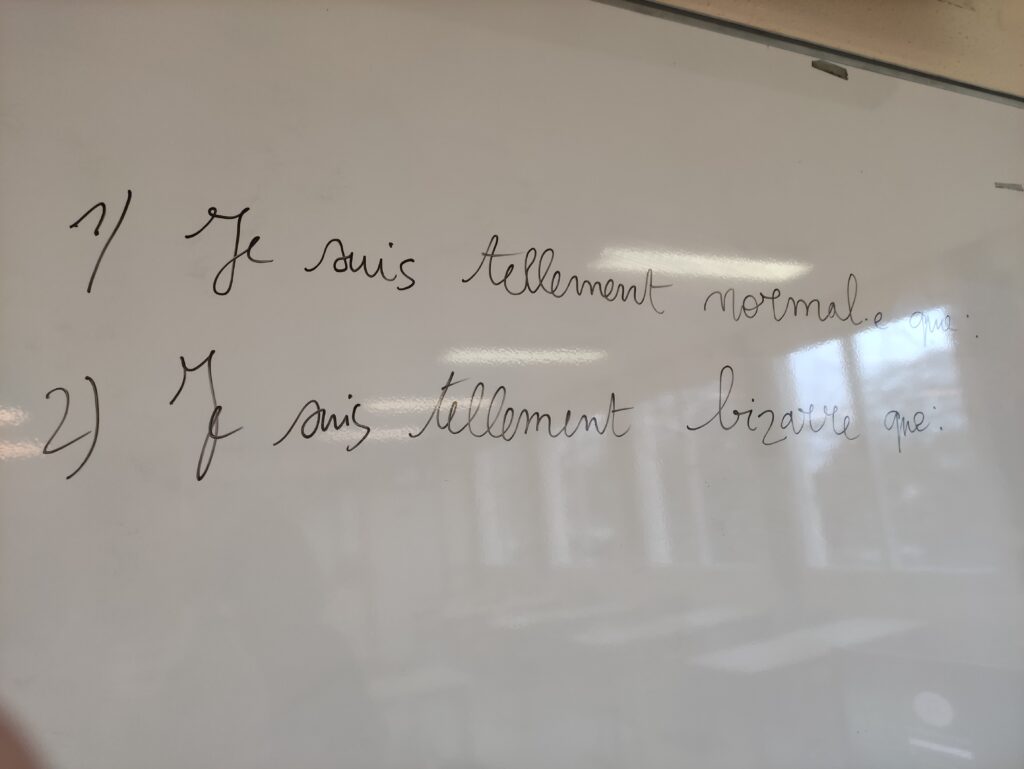 1) Je suis tellement normal.e que:
2) Je suis tellement bizarre que: